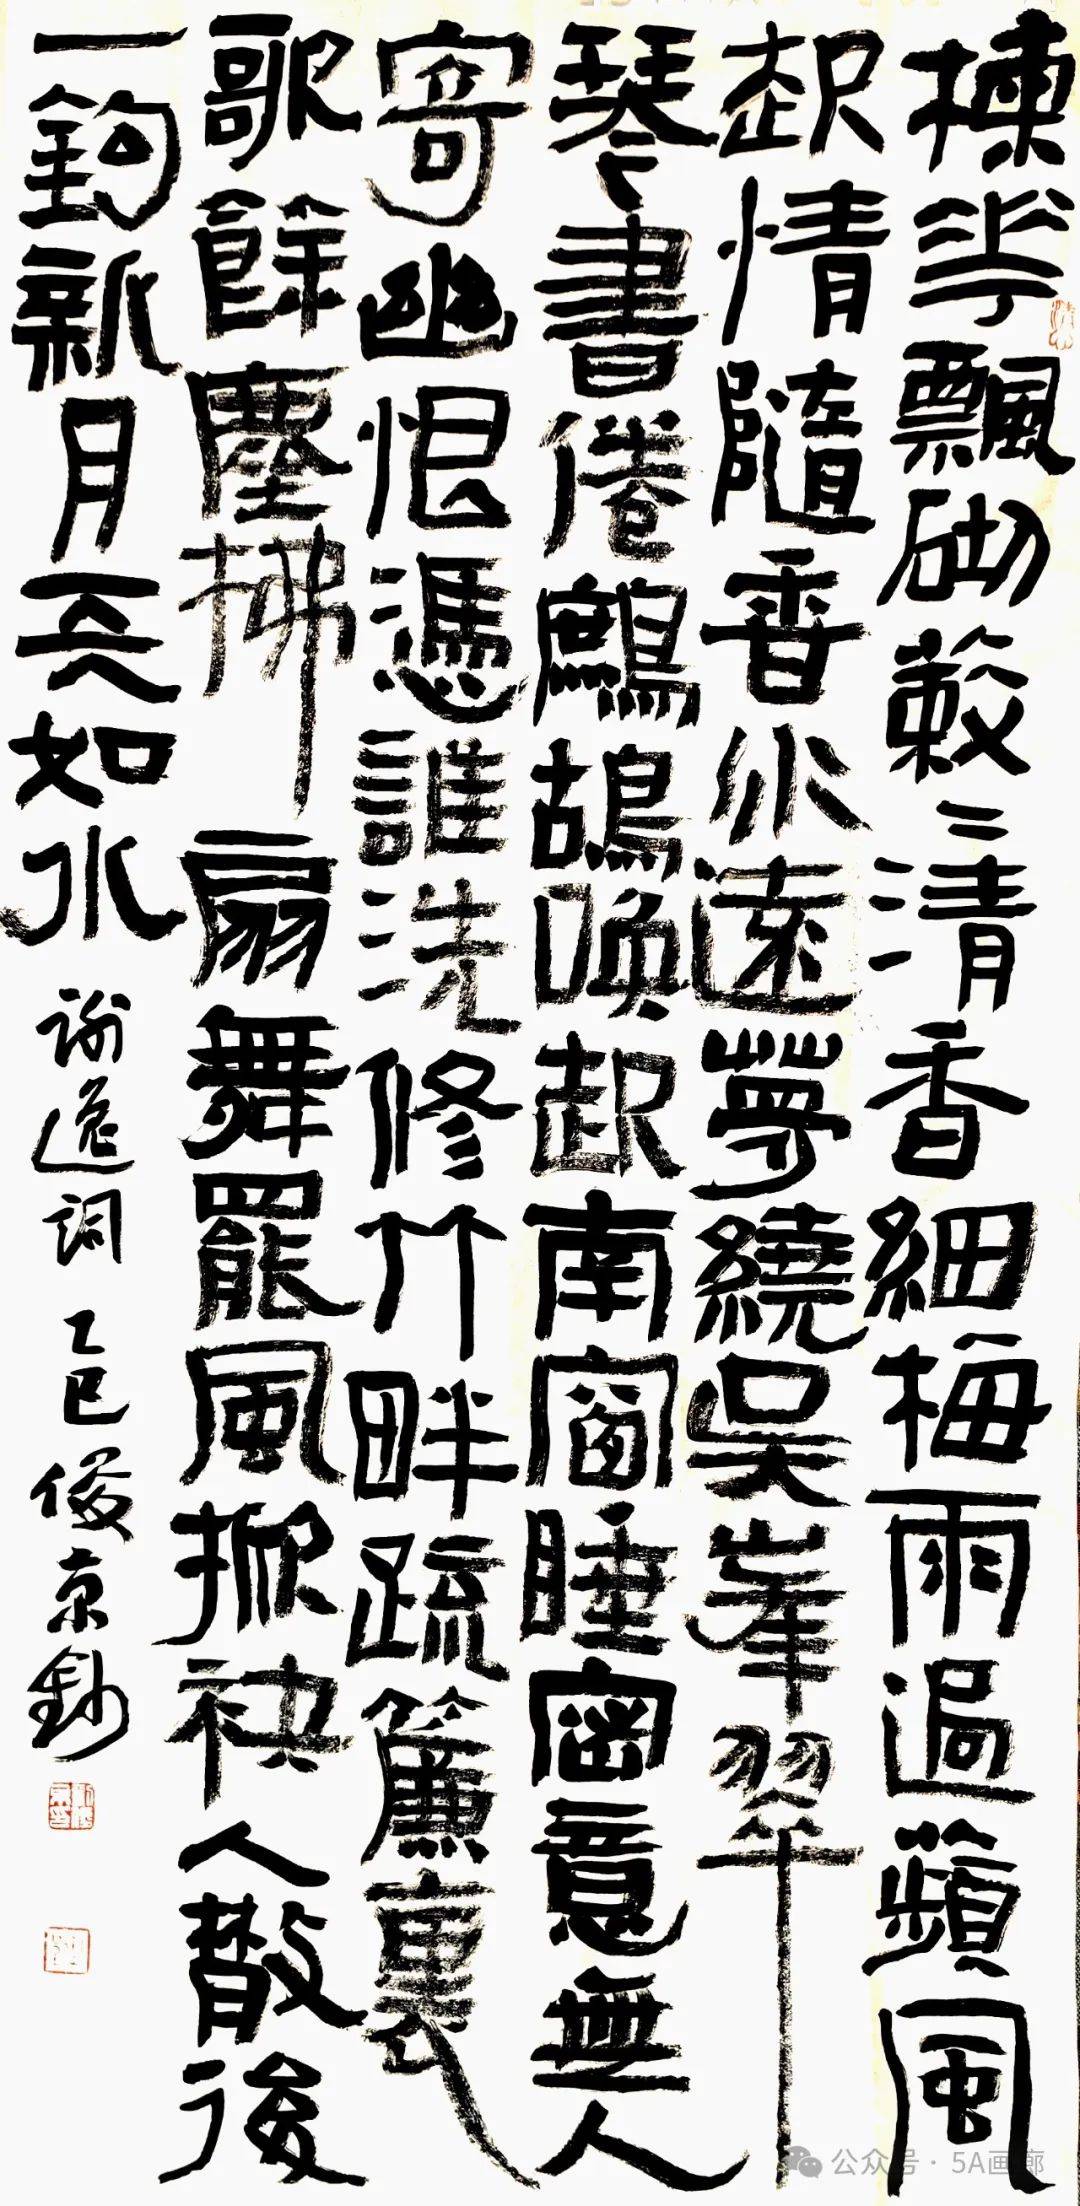 楝花飄砌蔌〻清香細梅雨過蘋風
起情隨香水遠夢繞吳峯翠
琴書倦鷓鴣喚起南窗睡密意無人
寄幽恨憑誰洗修竹畔疏簾裏
歌餘塵拂扇舞罷風掀袂人散後
一鉤新月天如水
謝逸詞 乙巳俊京鈔
公众号·5A画廊